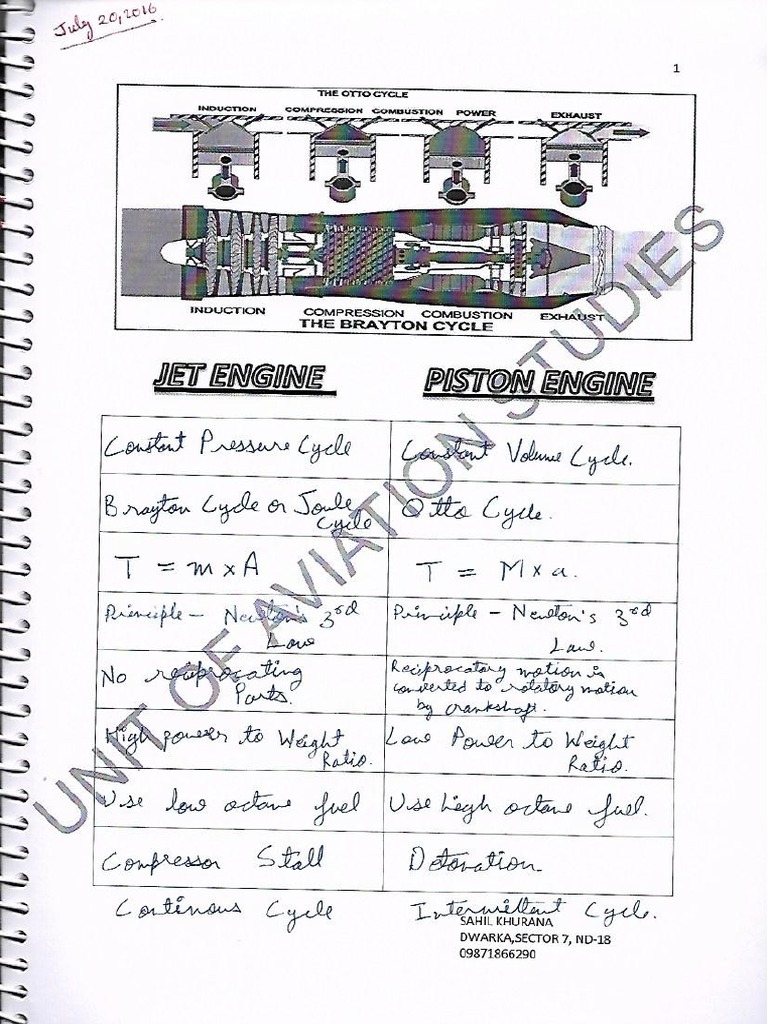 July 20, 2016
1
THE OTTO CYCLE
INDUCTION COMPRESSION COMBUSTION POWER EXHAUST
INDUCTION COMPRESSION COMBUSTION EXHAUST
THE BRAYTON CYCLE
JET ENGINE PISTON ENGINE
Constant Pressure Cycle
Constant Volume Cycle.
Brayton Cycle or Joule
Cycle
Otto Cycle.
T = m x A
T = M x a.
Principle - Newton's 3rd
Law
Principle - Newton's 3rd
Law.
No reciprocating
Parts.
Reciprocatory motion is
converted to rotatory motion
by crankshaft.
High power to Weight
Ratio.
Low Power to Weight
Ratio.
Use low octane fuel
Use high octane fuel.
Compressor Stall
Detonation
Continous Cycle
Intermittent Cycle.
SAHIL KHURANA
DWARKA,SECTOR 7, ND-18
09871866290
UNIT OF AVIATION STUDIES